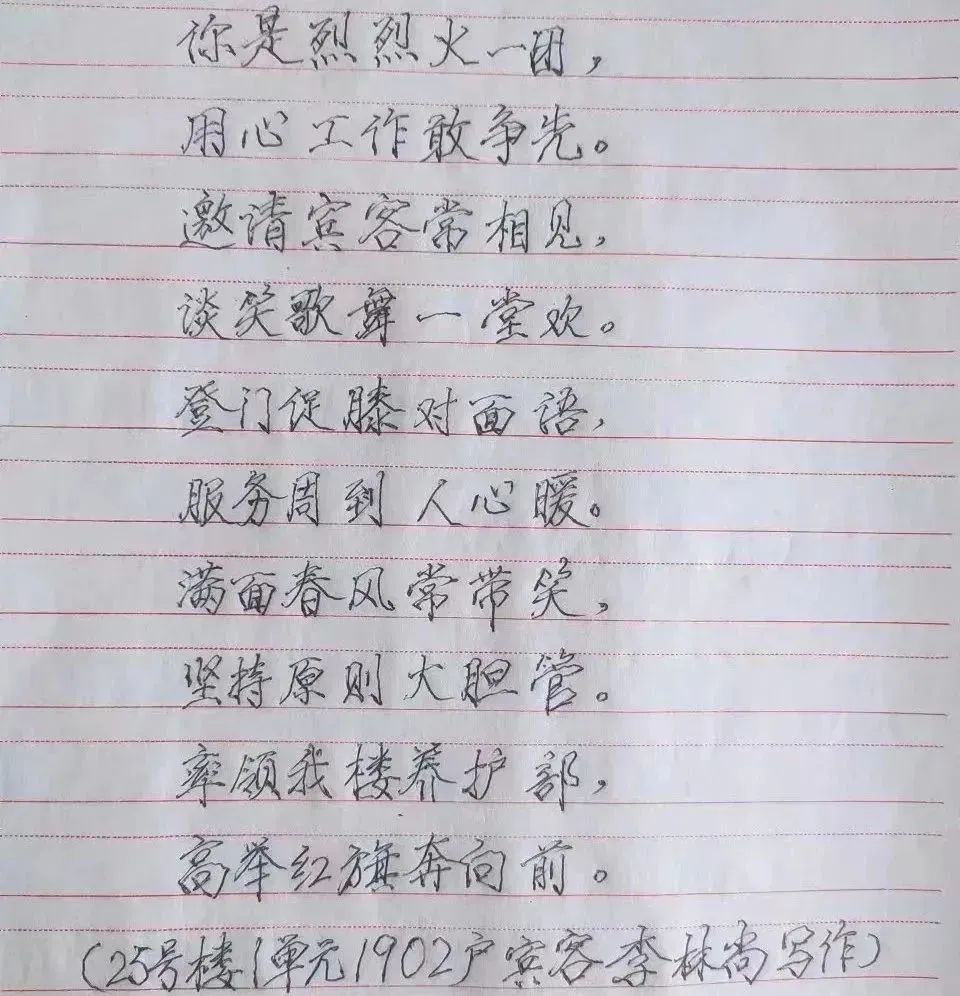 你是烈烈火一团，
用心工作敢争先。
邀请宾客常相见，
谈笑歌舞一堂欢。
登门促膝对面語，
服务周到人心暖。
满面春风常带笑，
坚持原则大胆管。
率领我楼养护部，
高举红旗奔向前。
（25号楼1单元1902户宾客李林尚写作）